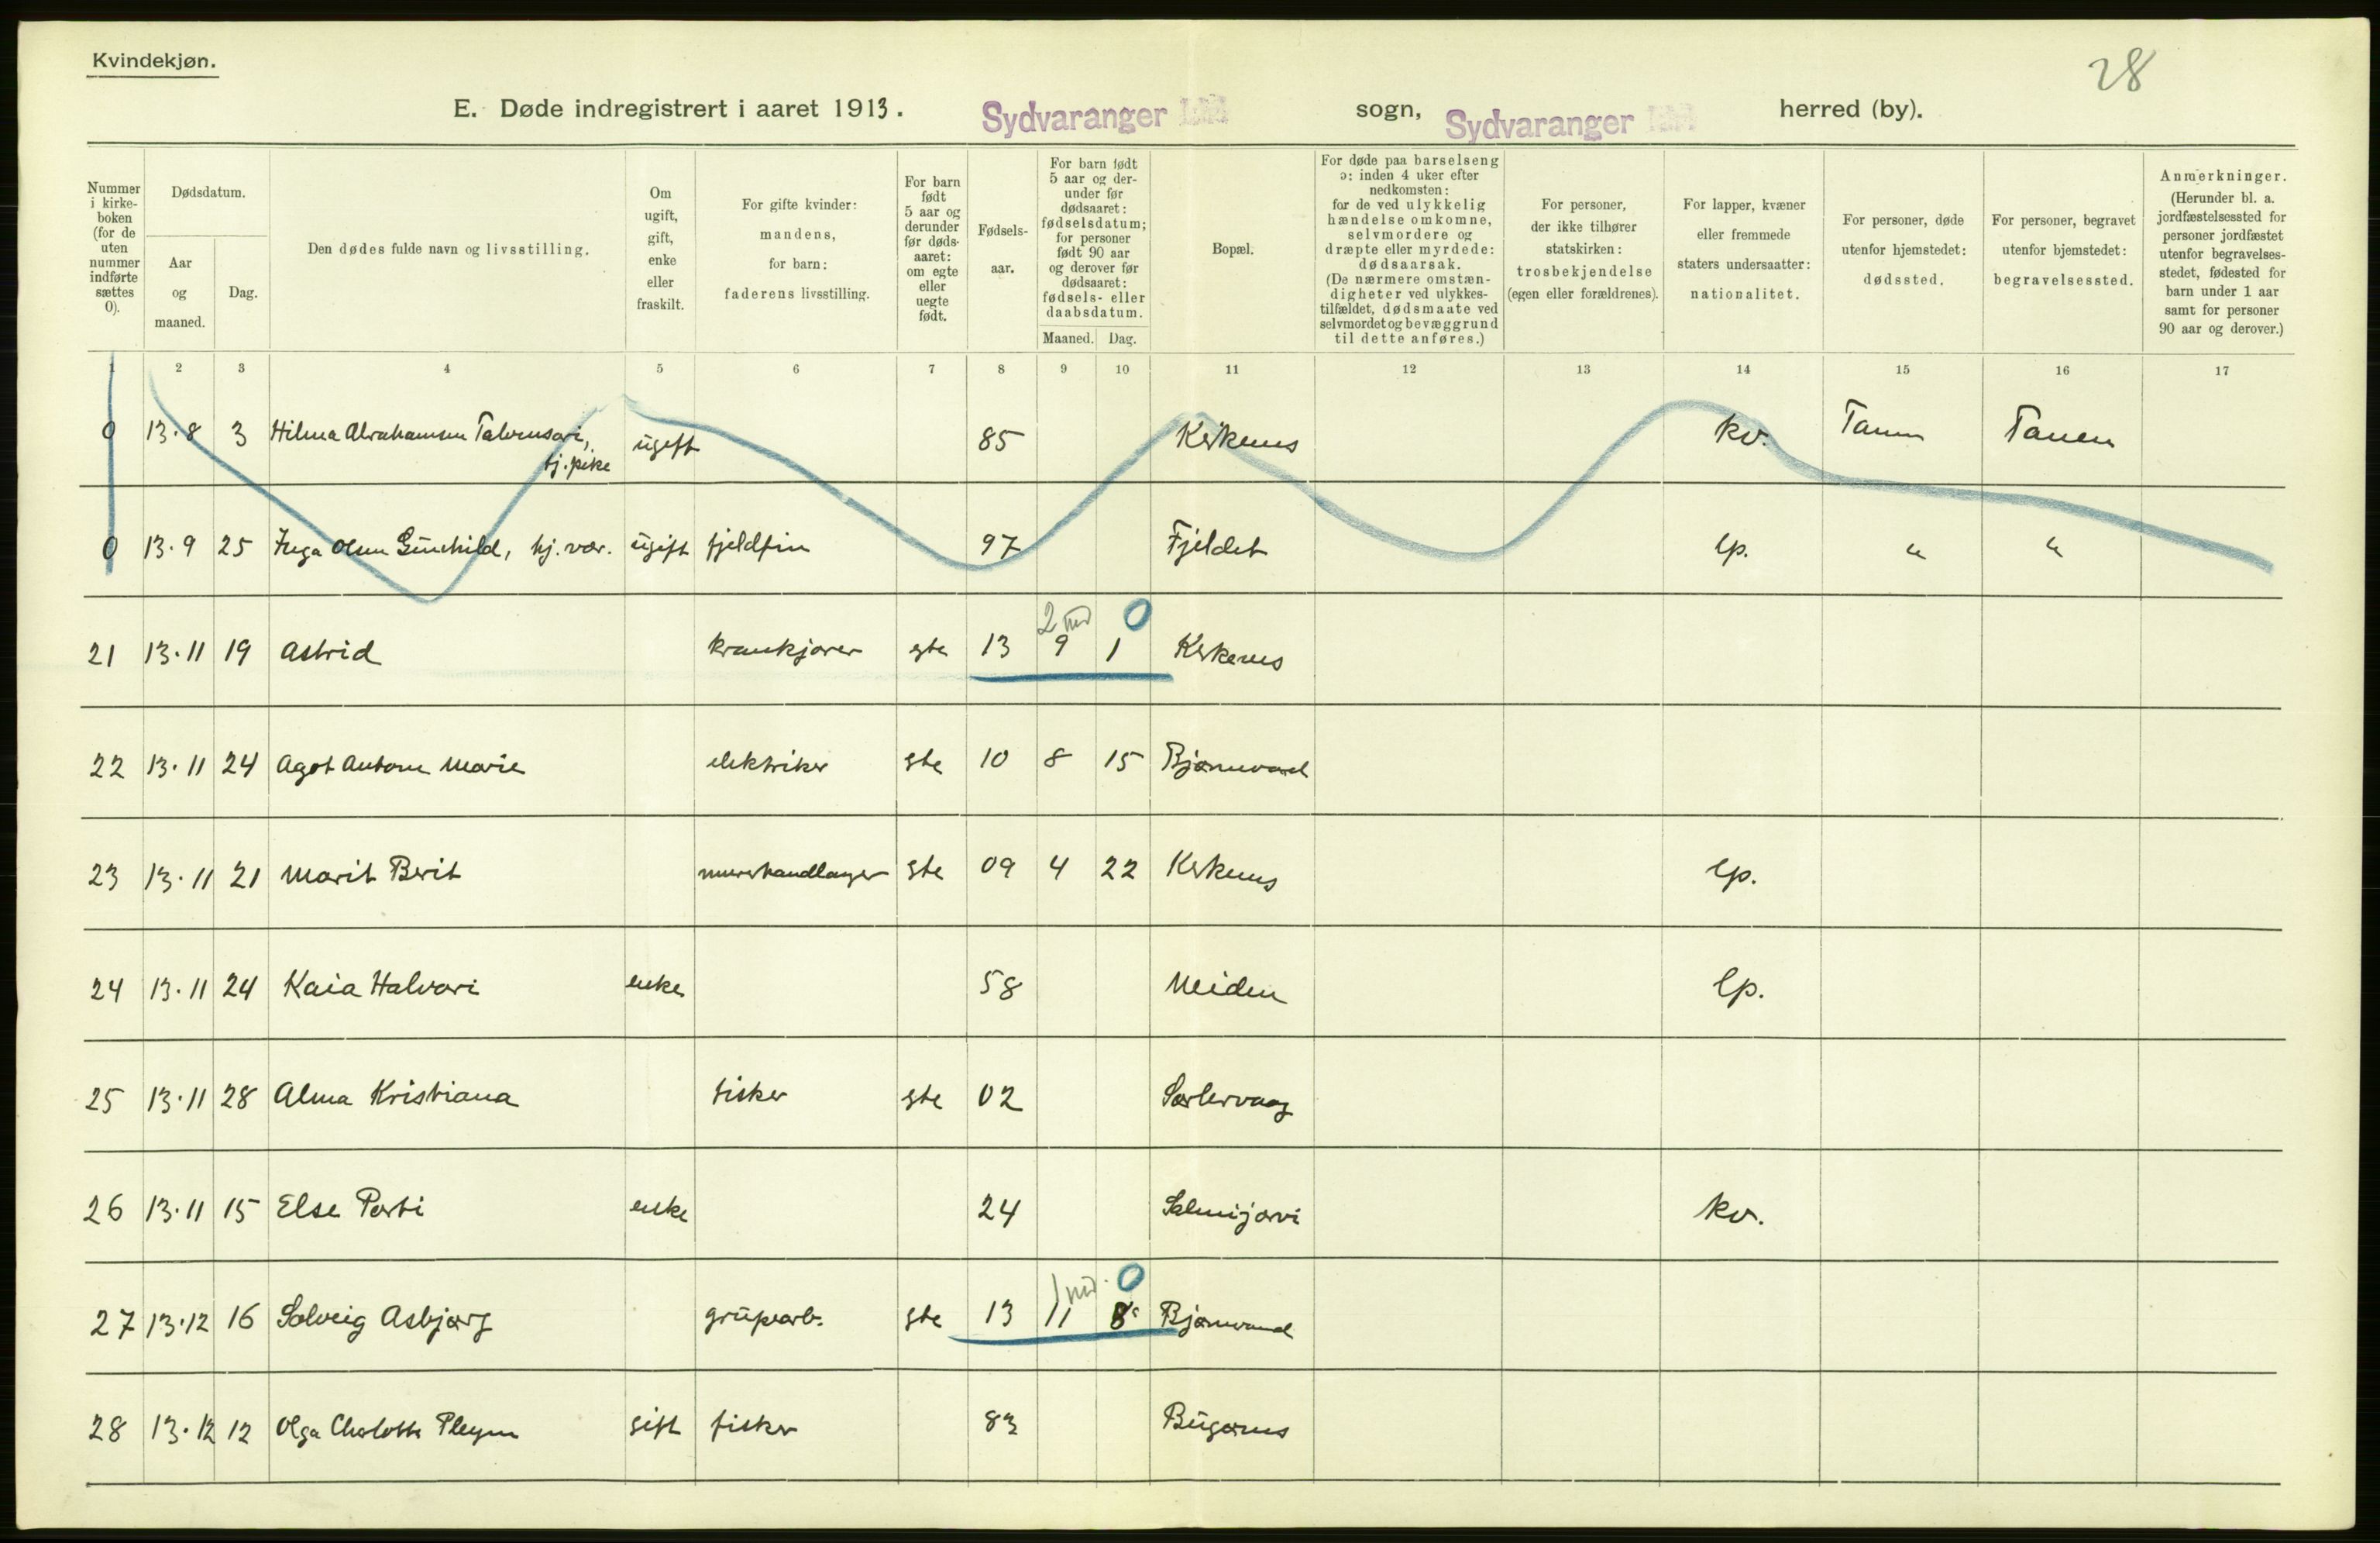 Kvindekjøn.
28
E. Døde indregistrert i aaret 1913. Sydvaranger sogn, Sydvaranger herred (by).
Nummer i kirke- boken (for de uten nummer indførte sættes 0).
Dødsdatum.
Aar og maaned.
Dag.
Den dødes fulde navn og livsstilling.
Om ugift, gift, enke eller fraskilt.
For gifte kvinder: mandens, for barn: faderens livsstilling.
For barn født 5 aar og derunder før døds- aaret: om egte eller uegte født.
Fødsels- aar.
For barn født 5 aar og der- under før dødsaaret: fødselsdatum; for personer født 90 aar og derover før dødsaaret: fødsels- eller daabsdatum.
Maaned. Dag.
Bopæl.
For døde paa barselseng ɔ: inden 4 uker efter nedkomsten: for de ved ulykkelig hændelse omkomne, selvmordere og dræpte eller myrdede: dødsaarsak. (De nærmere omstæn- digheter ved ulykkes- tilfældet, dødsmaate ved selvmordet og bevæggrund til dette anføres.)
For personer, der ikke tilhører statskirken: trosbekjendelse (egen eller forældrenes).
For lapper, kvæner eller fremmede staters undersaatter: nationalitet.
For personer, døde utenfor hjemstedet: dødssted.
For personer, begravet utenfor hjemstedet: begravelsessted.
Anmerkninger. (Herunder bl. a. jordfæstelsessted for personer jordfæstet utenfor begravelses- stedet, fødested for barn under 1 aar samt for personer 90 aar og derover.)
1 2 3 4 5 6 7 8 9 10 11 12 13 14 15 16 17
0 13·8 3 Hilma Abrahamsen Talvensari, ugift 85 Kirkenes kv. Tanen Tanen
tj. pike
0 13·9 25 Inga Olsen Gunhild, hj. vær. ugift fjeldfin 97 Fjeldet lp. " "
2 md 0
21 13·11 19 Astrid krankjører egte 13 9 1 Kirkenes
22 13·11 24 Agot Antone Marie elektriker egte 10 8 15 Bjørnevand
23 13·11 21 Marit Berit murerhandlanger egte 09 4 22 Kirkenes lp.
24 13·11 24 Kaia Halvari enke 58 Neiden lp.
25 13·11 28 Alma Kristiana fisker egte 02
26 13·11 15 Else Porti enke 24 Salmijärvi kv.
1 md. 0
27 13·12 16 Solveig Asbjørg grubearb. egte 13 11 8 Bjørnevand
28 13·12 12 Olga Charlotte Pleym gift fisker 83 Bugønes